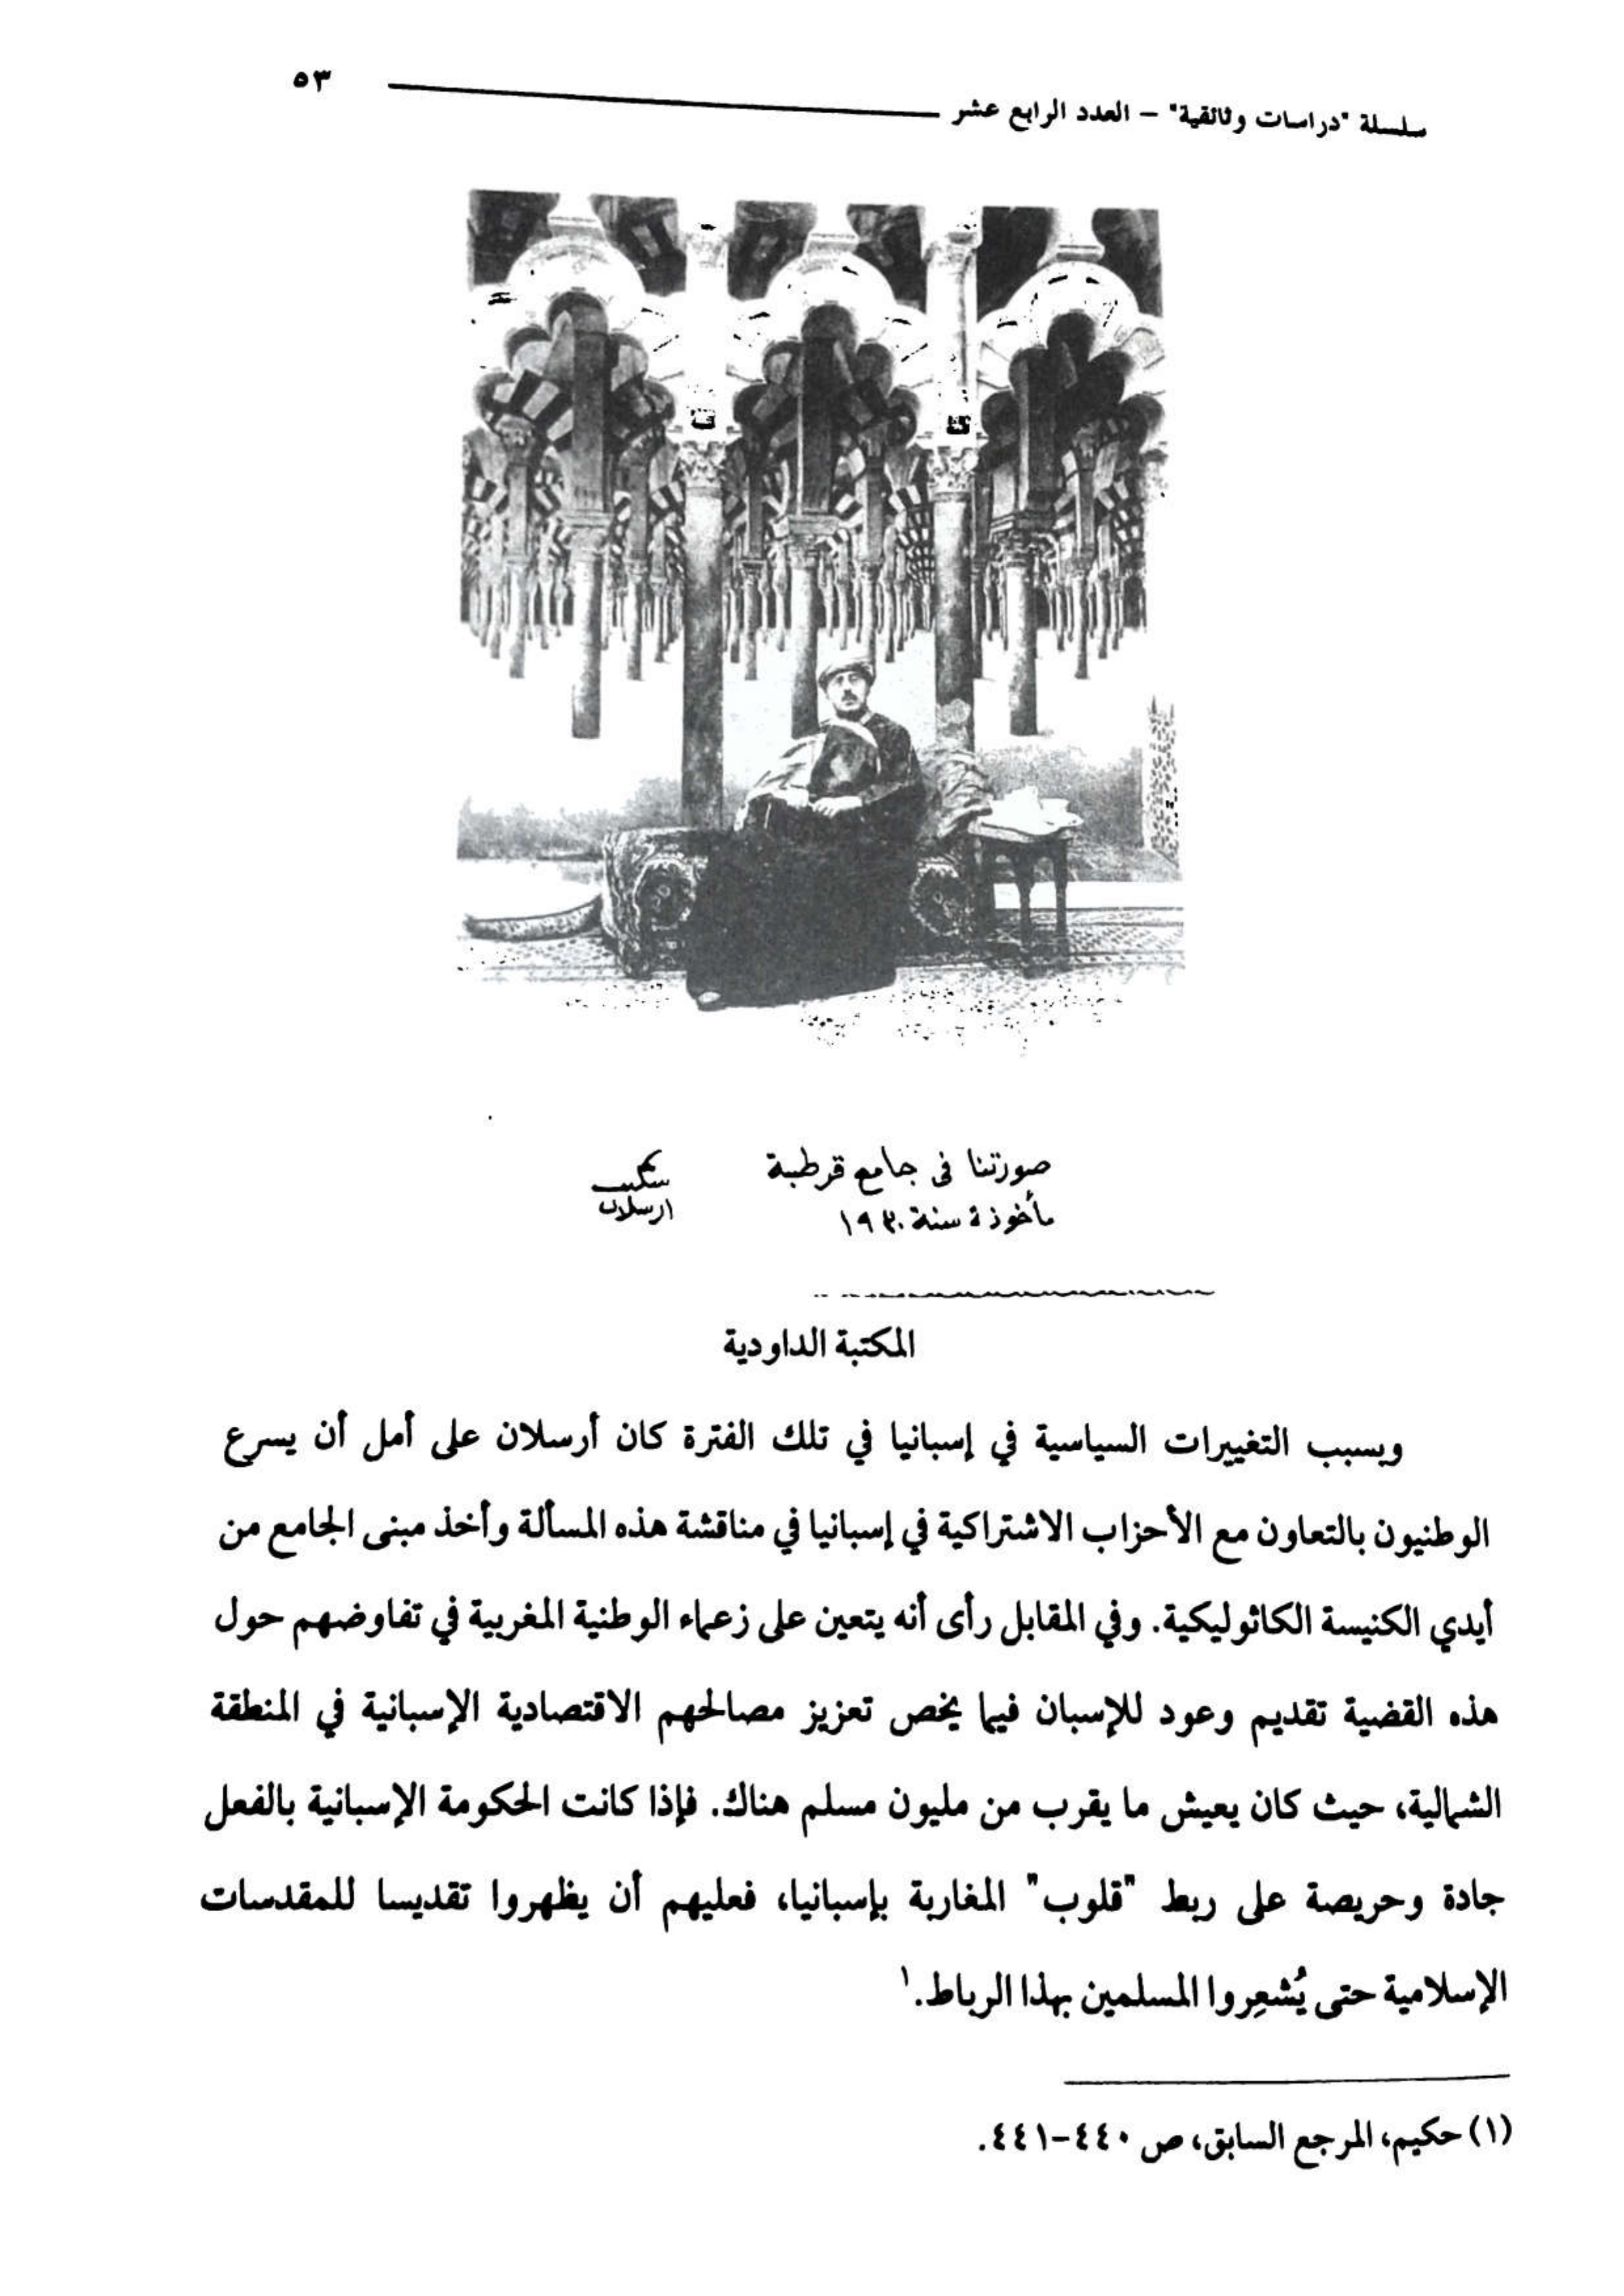 سلسلة "دراسات وثائقية" – العدد الرابع عشر ٥٣
صورتنا فى جامع قرطبة
مأخوذة سنة ١٩٣٠
شكيب
ارسلان
المكتبة الداودية
وبسبب التغييرات السياسية في إسبانيا في تلك الفترة كان أرسلان على أمل أن يسرع
الوطنيون بالتعاون مع الأحزاب الاشتراكية في إسبانيا في مناقشة هذه المسألة وأخذ مبنى الجامع من
أيدي الكنيسة الكاثوليكية. وفي المقابل رأى أنه يتعين على زعماء الوطنية المغربية في تفاوضهم حول
هذه القضية تقديم وعود للإسبان فيما يخص تعزيز مصالحهم الاقتصادية الإسبانية في المنطقة
الشمالية، حيث كان يعيش ما يقرب من مليون مسلم هناك. فإذا كانت الحكومة الإسبانية بالفعل
جادة وحريصة على ربط "قلوب" المغاربة بإسبانيا، فعليهم أن يظهروا تقديسا للمقدسات
الإسلامية حتى يُشعِروا المسلمين بهذا الرباط.١
(١) حكيم، المرجع السابق، ص ٤٤٠-٤٤١.